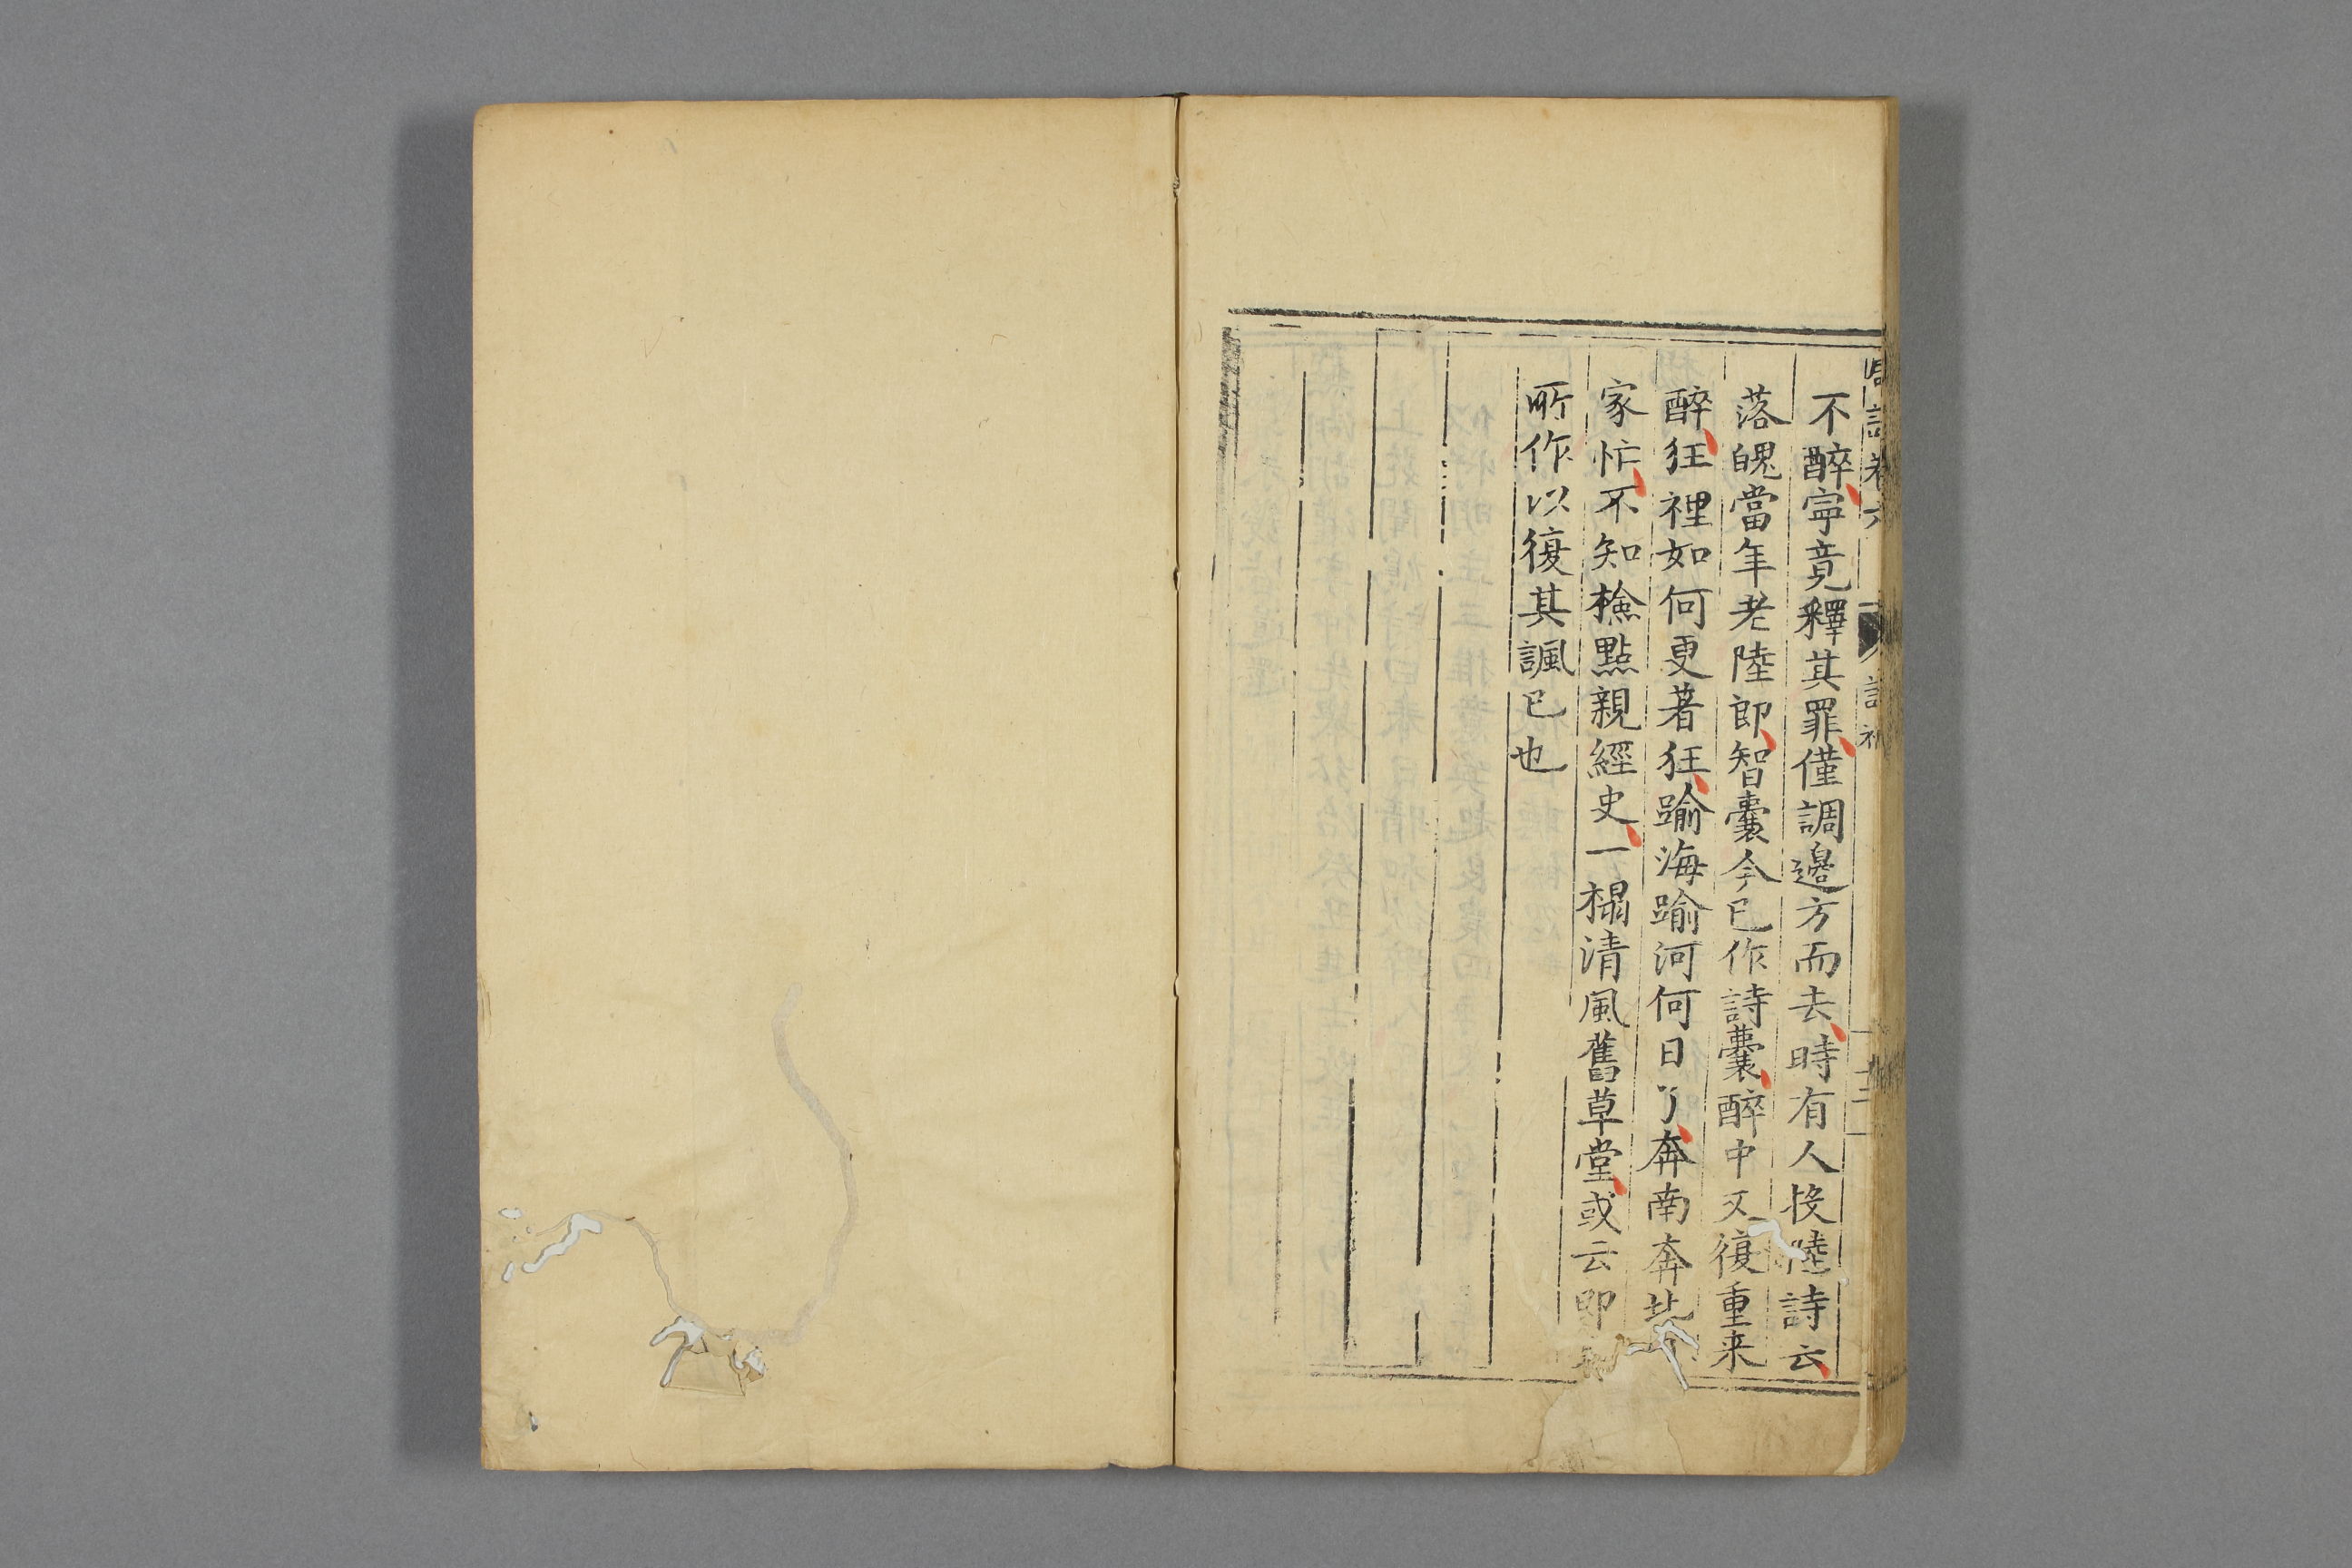 不醉寧竟釋其罪僅調邊方而去時有人投陸詩云
落魄當年老陸郎智囊今已作詩囊醉中又復重来
醉狂裡如何更著狂踰海踰河何日了奔南奔北
家忙不知檢點親經史一榻清風舊草堂或云即
所作以復其諷已也